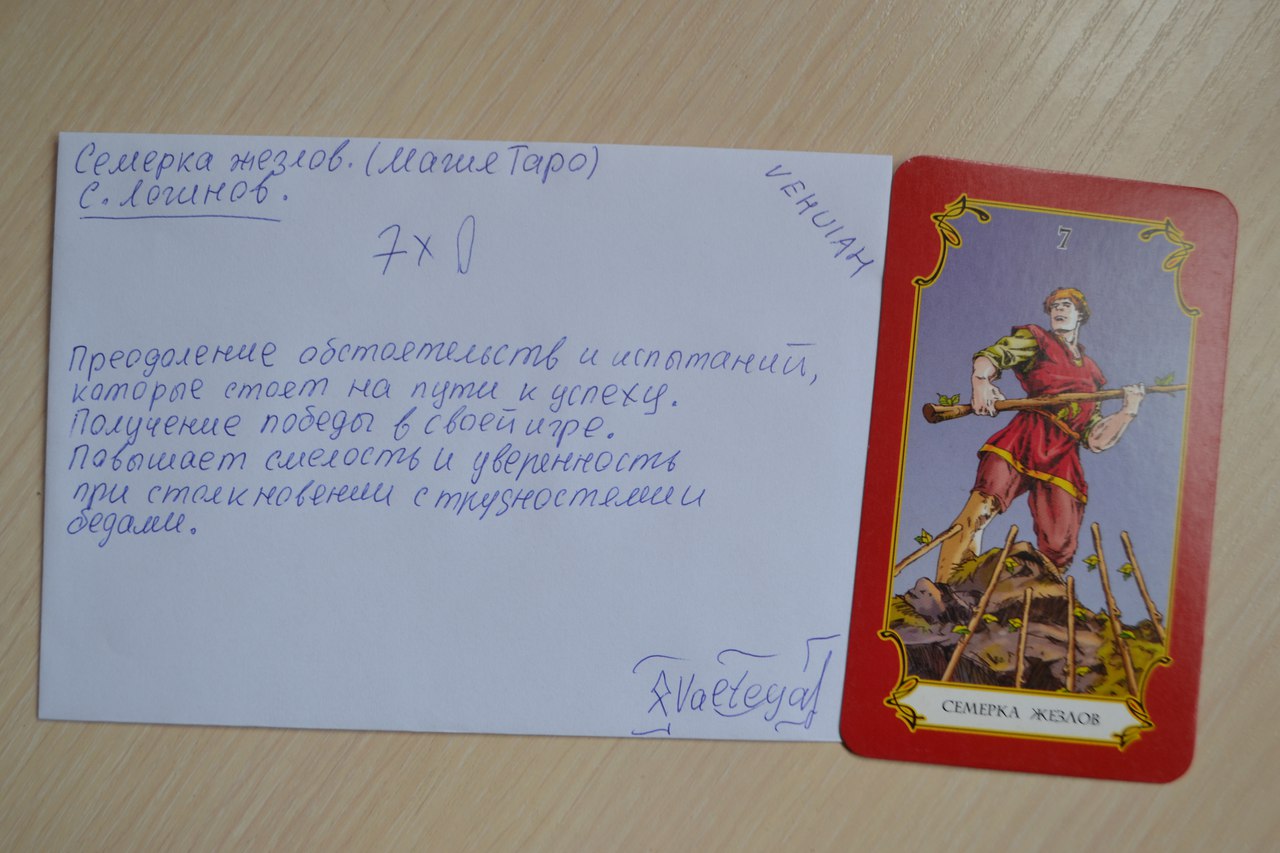 Семерка жезлов. (Магия Таро)
С. Логинов.
VEHUIAH
7 х
Преодоление обстоятельств и испытаний,
которые стоет на пути к успеху.
Получение победы в своей игре.
Повышает смелость и уверенность
при столкновении с трудностями и
бедами.
7
СЕМЕРКА ЖЕЗЛОВ